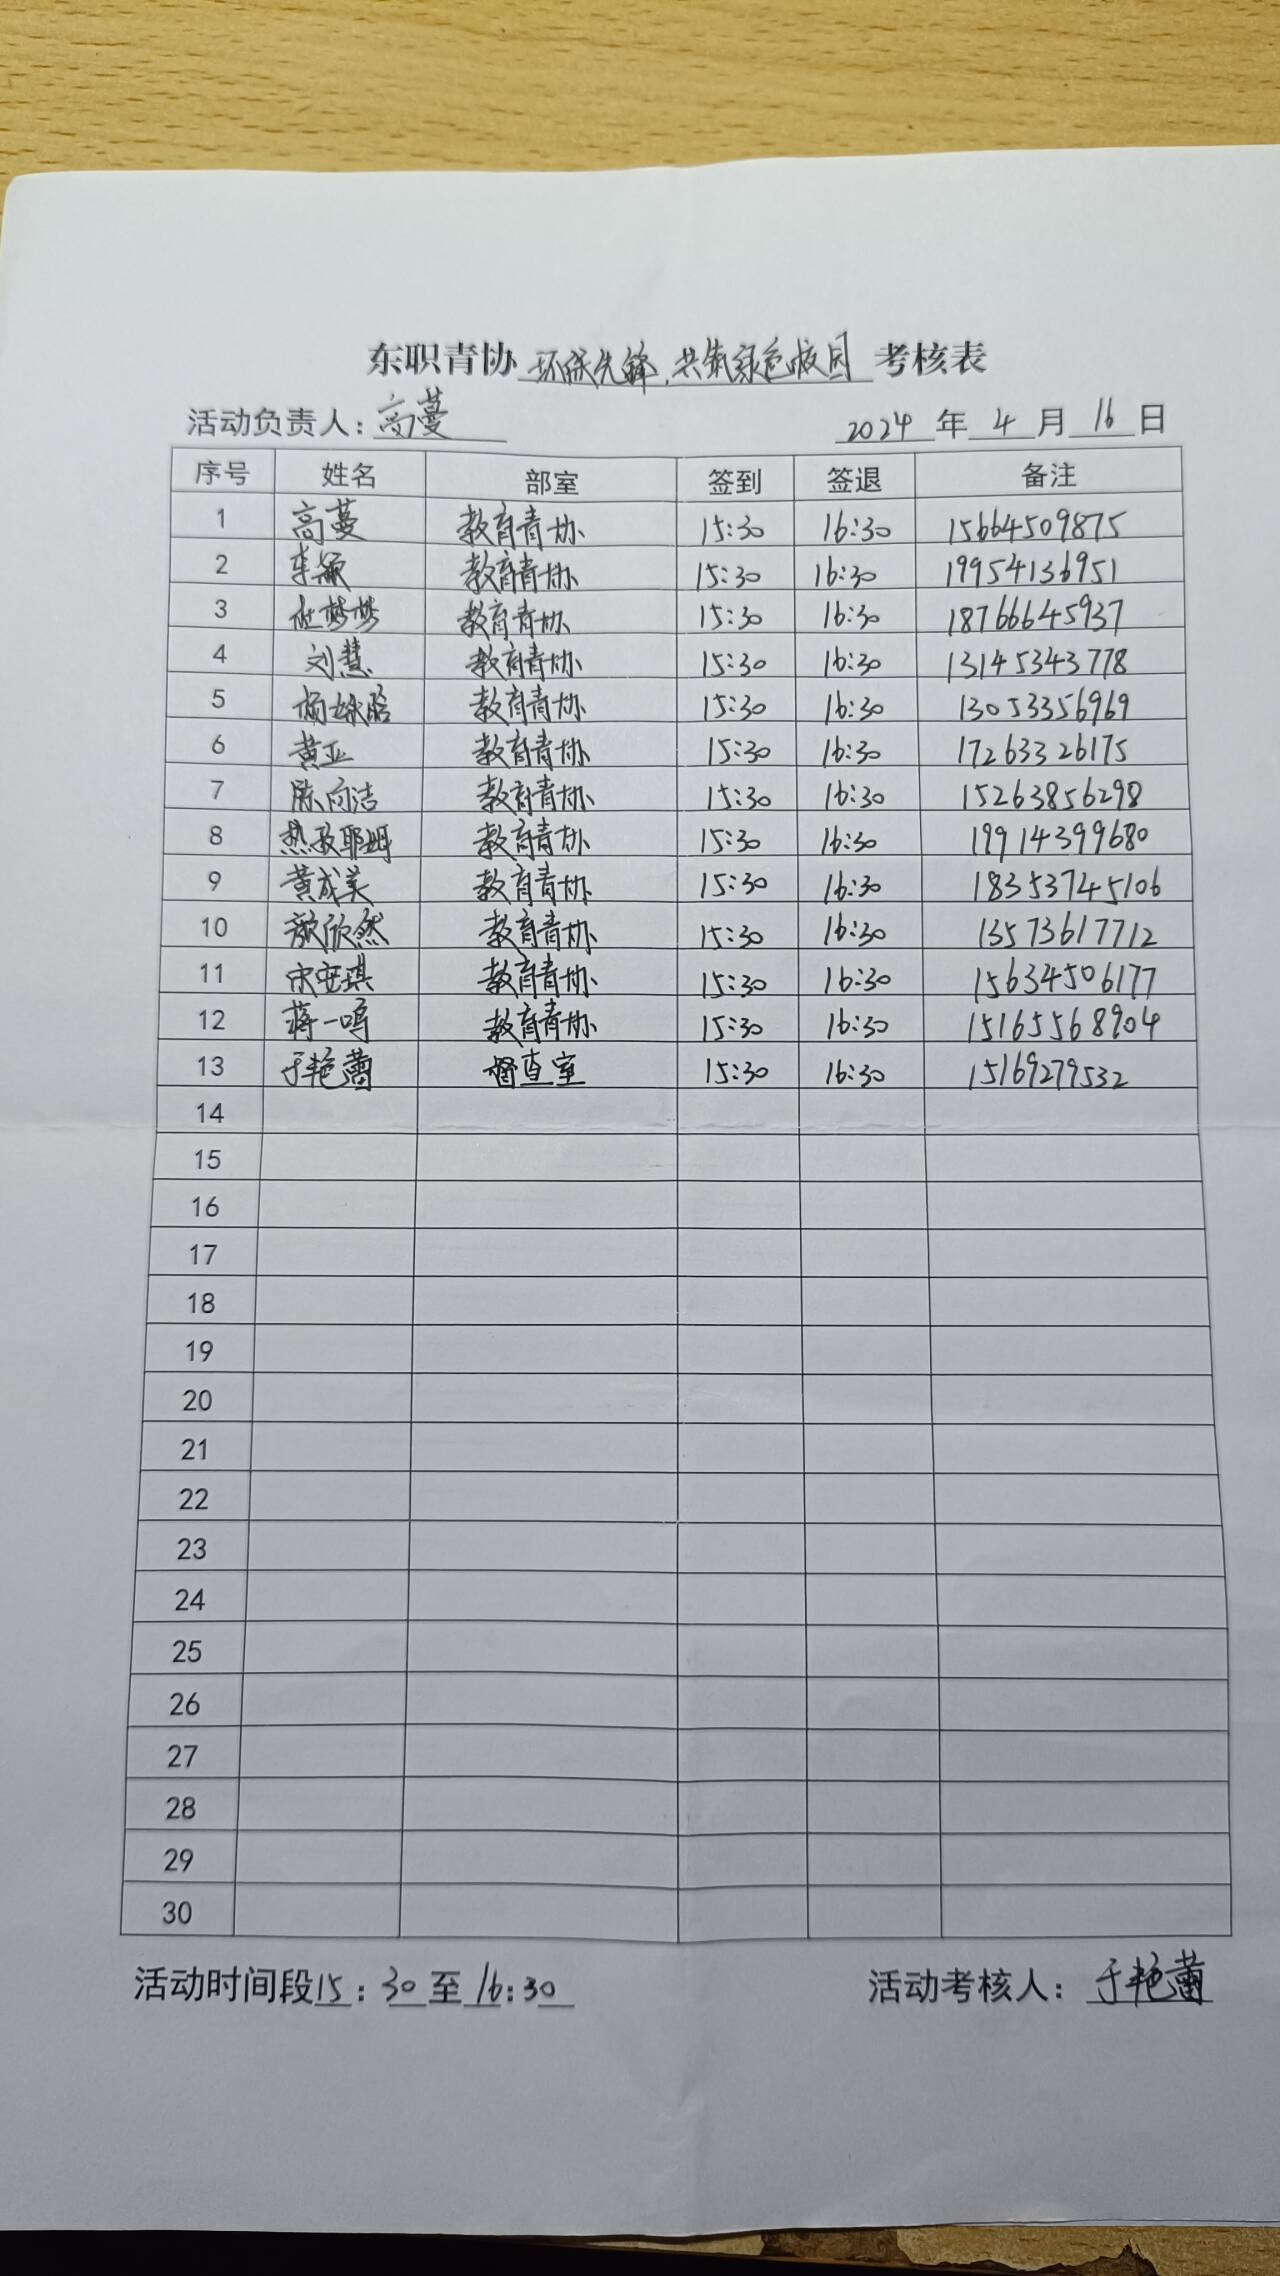 东职青协 环保先锋,共筑绿色校园 考核表
活动负责人:高蔓 2024 年 4 月 16 日
序号 姓名 部室 签到 签退 备注
1 高蔓 教育青协 15:30 16:30 15664509875
2 李颖 教育青协 15:30 16:30 19954136951
3 杜梦梦 教育青协 15:30 16:30 18766645937
4 刘慧 教育青协 15:30 16:30 13145343778
5 教育青协 15:30 16:30 13053356969
6 黄亚 教育青协 15:30 16:30 17263326175
7 陈向洁 教育青协 15:30 16:30 15263856298
8 教育青协 15:30 16:30 19914399680
9 黄成美 教育青协 15:30 16:30 18353745106
10 颜欣然 教育青协 15:30 16:30 13573617712
11 宋安琪 教育青协 15:30 16:30 15634506177
12 蒋一鸣 教育青协 15:30 16:30 15165568904
13 于艳蕾 督查室 15:30 16:30 15169279532
14
15
16
17
18
19
20
21
22
23
24
25
26
27
28
29
30
活动时间段15:30至16:30 活动考核人:于艳蕾